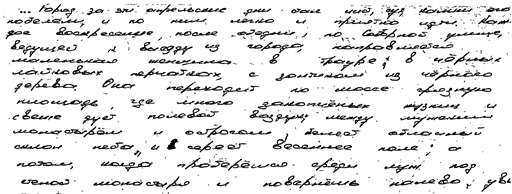 ... Город за эти апрельские дни стал чист, сух, камни его
побелели, и по ним легко и приятно идти. Каж-
дое воскресенье, после обедни, по Соборной улице,
ведущей к выезду из города, направляется
маленькая женщина в трауре, в чёрных
лайковых перчатках, с зонтиком из чёрного
дерева. Она переходит по шоссе грязную
площадь, где много закопчённых кузниц и
свежо дует полевой воздух; между мужским
монастырём и острогом белеет облачный
склон неба, и сереет весеннее поле, а
потом, когда проберёшься среди луж под
стеной монастыря и повернёшь налево,